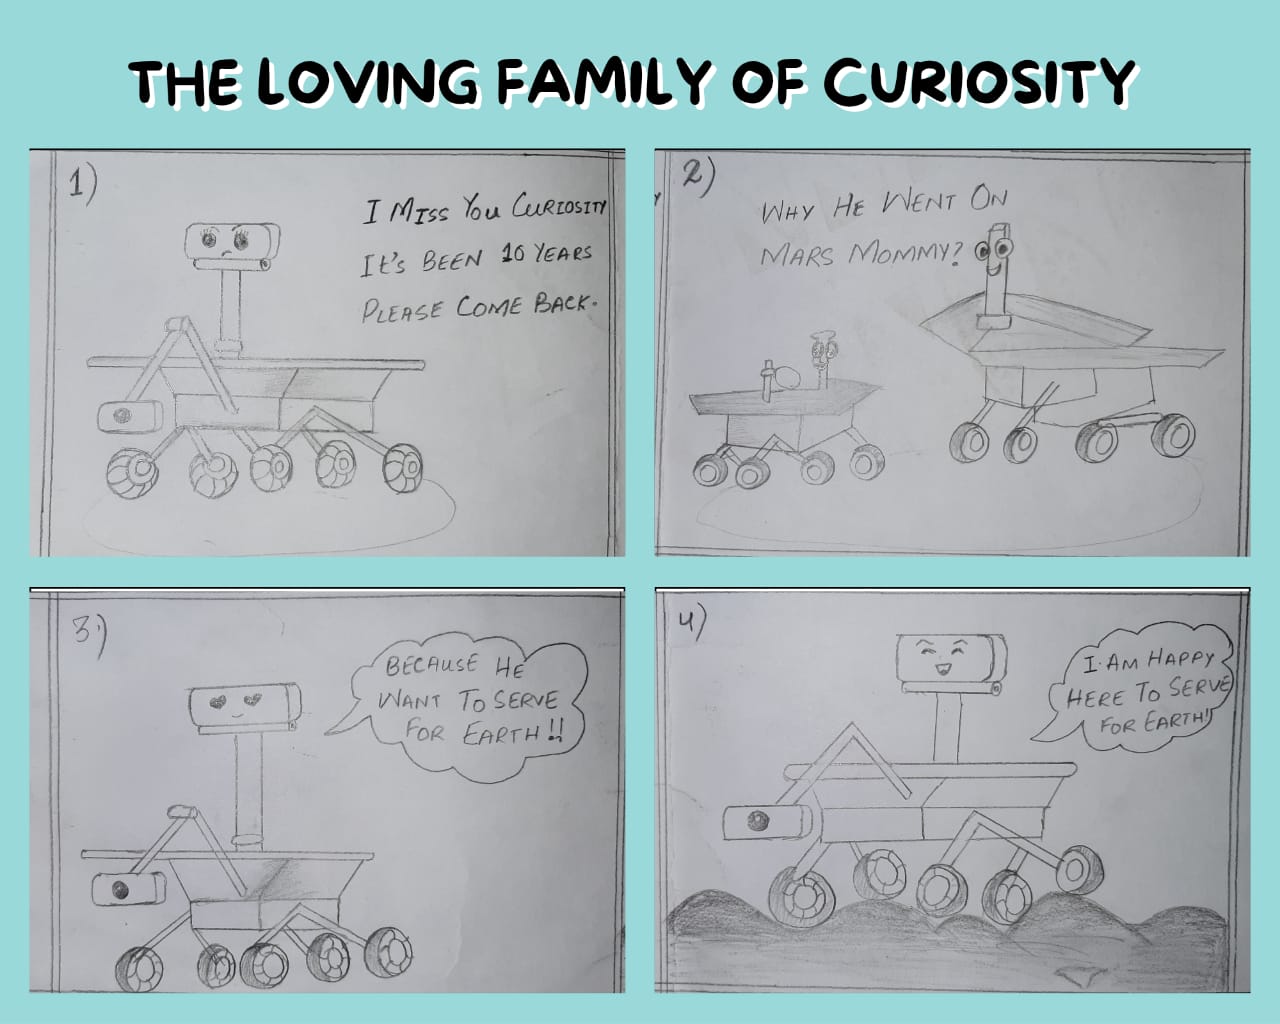 THE LOVING FAMILY OF CURIOSITY
1)
I MISS YOU CURIOSITY
IT'S BEEN 10 YEARS
PLEASE COME BACK.
2)
WHY HE WENT ON
MARS MOMMY?
3)
BECAUSE HE
WANT TO SERVE
FOR EARTH!!
4)
I AM HAPPY
HERE TO SERVE
FOR EARTH!